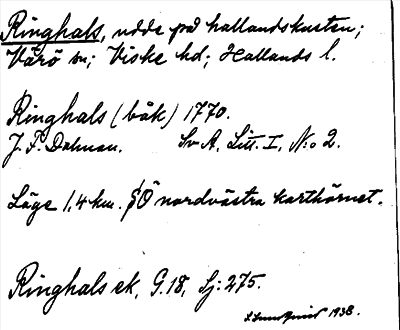 Ringhals, udde på hallandskusten;
Värö sn; Viske hd; Hallands l.
Ringhals (båk) 1770.
J. F. Dalman. Sv A, Litt. I, N:o 2.
Läge 1,4 km. SÖ nordvästra karthörnet.
Ringhals ek, G.18, Sj:275.
1938.